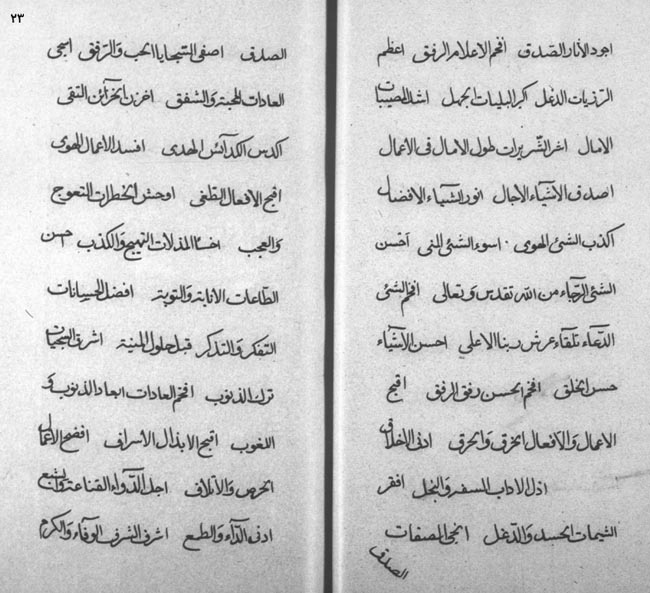 ٢٣
اجود الآثار الصدق افخم الاعلام الرفق اعظم
الرزيات الدغل اكبر البليات الجهل اشد المصيبات
الامال اخر الشريرات طول الامال فى الاعمال
اصدق الاشياء الاجال انور الشياء الافضال
اكذب الشئ الهوى اسوء الشئ المنى احسن
الشئ الرجاء من الله تقدس وتعالى افخم الشئ
الدعاء تلقاء عرش ربنا الاعلى احسن الاشياء
حسن الخلق افخم الحسن رفق الرفق اقبح
الاعمال والافعال الخرق والحرق ادنى الاخلاق
اذل الاداب السفه والبخل افقر
الشيمات الحسد والدغل انجى الصفات
الصدق
الصدق اصفى السجايا الحب والرفق اجى
العادات المحبة والشفق اخزن الخزائن التقى
اكدس الكدائس الهدى افسد الاعمال الهوى
اقبح الافعال الطغى اوحش الخطرات التعوج
والعجب اخس المذلات التهيج والكذب حسن
الطاعات الانابة والتوبة افضل الحسانات
التفكر والتذكر قبل حلول المنية اشرق السجيات
ترك الذنوب افخم العادات ابعاد الذنوب و
اللغوب اقبح الابذال الاسراف افضح الاعمال
الحرص والاتلاف اجل الدواء القناعة والشبع
ادنى الداء والطمع اشرف الشرف الوفاء والكرم